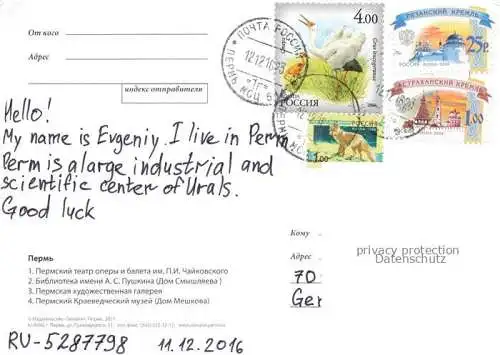 От кого
Адрес
индекс отправителя
ПОЧТА РОССИИ
4.00
РОССИЯ
1.00
РЯЗАНСКИЙ КРЕМЛЬ
25р
АСТРАХАНСКИЙ КРЕМЛЬ
1.00
Hello!
My name is Evgeniy. I live in Perm
Perm is a large industrial and
scientific center of Urals.
Good luck
Пермь
1. Пермский театр оперы и балета им. П.И. Чайковского
2. Библиотека имени А. С. Пушкина (Дом Смышляева )
3. Пермская художественная галерея
4. Пермский Краеведческий музей (Дом Мешкова)
Кому
Адрес
privacy protection
Datenschutz
70
Ger
RU-5287798 11.12.2016